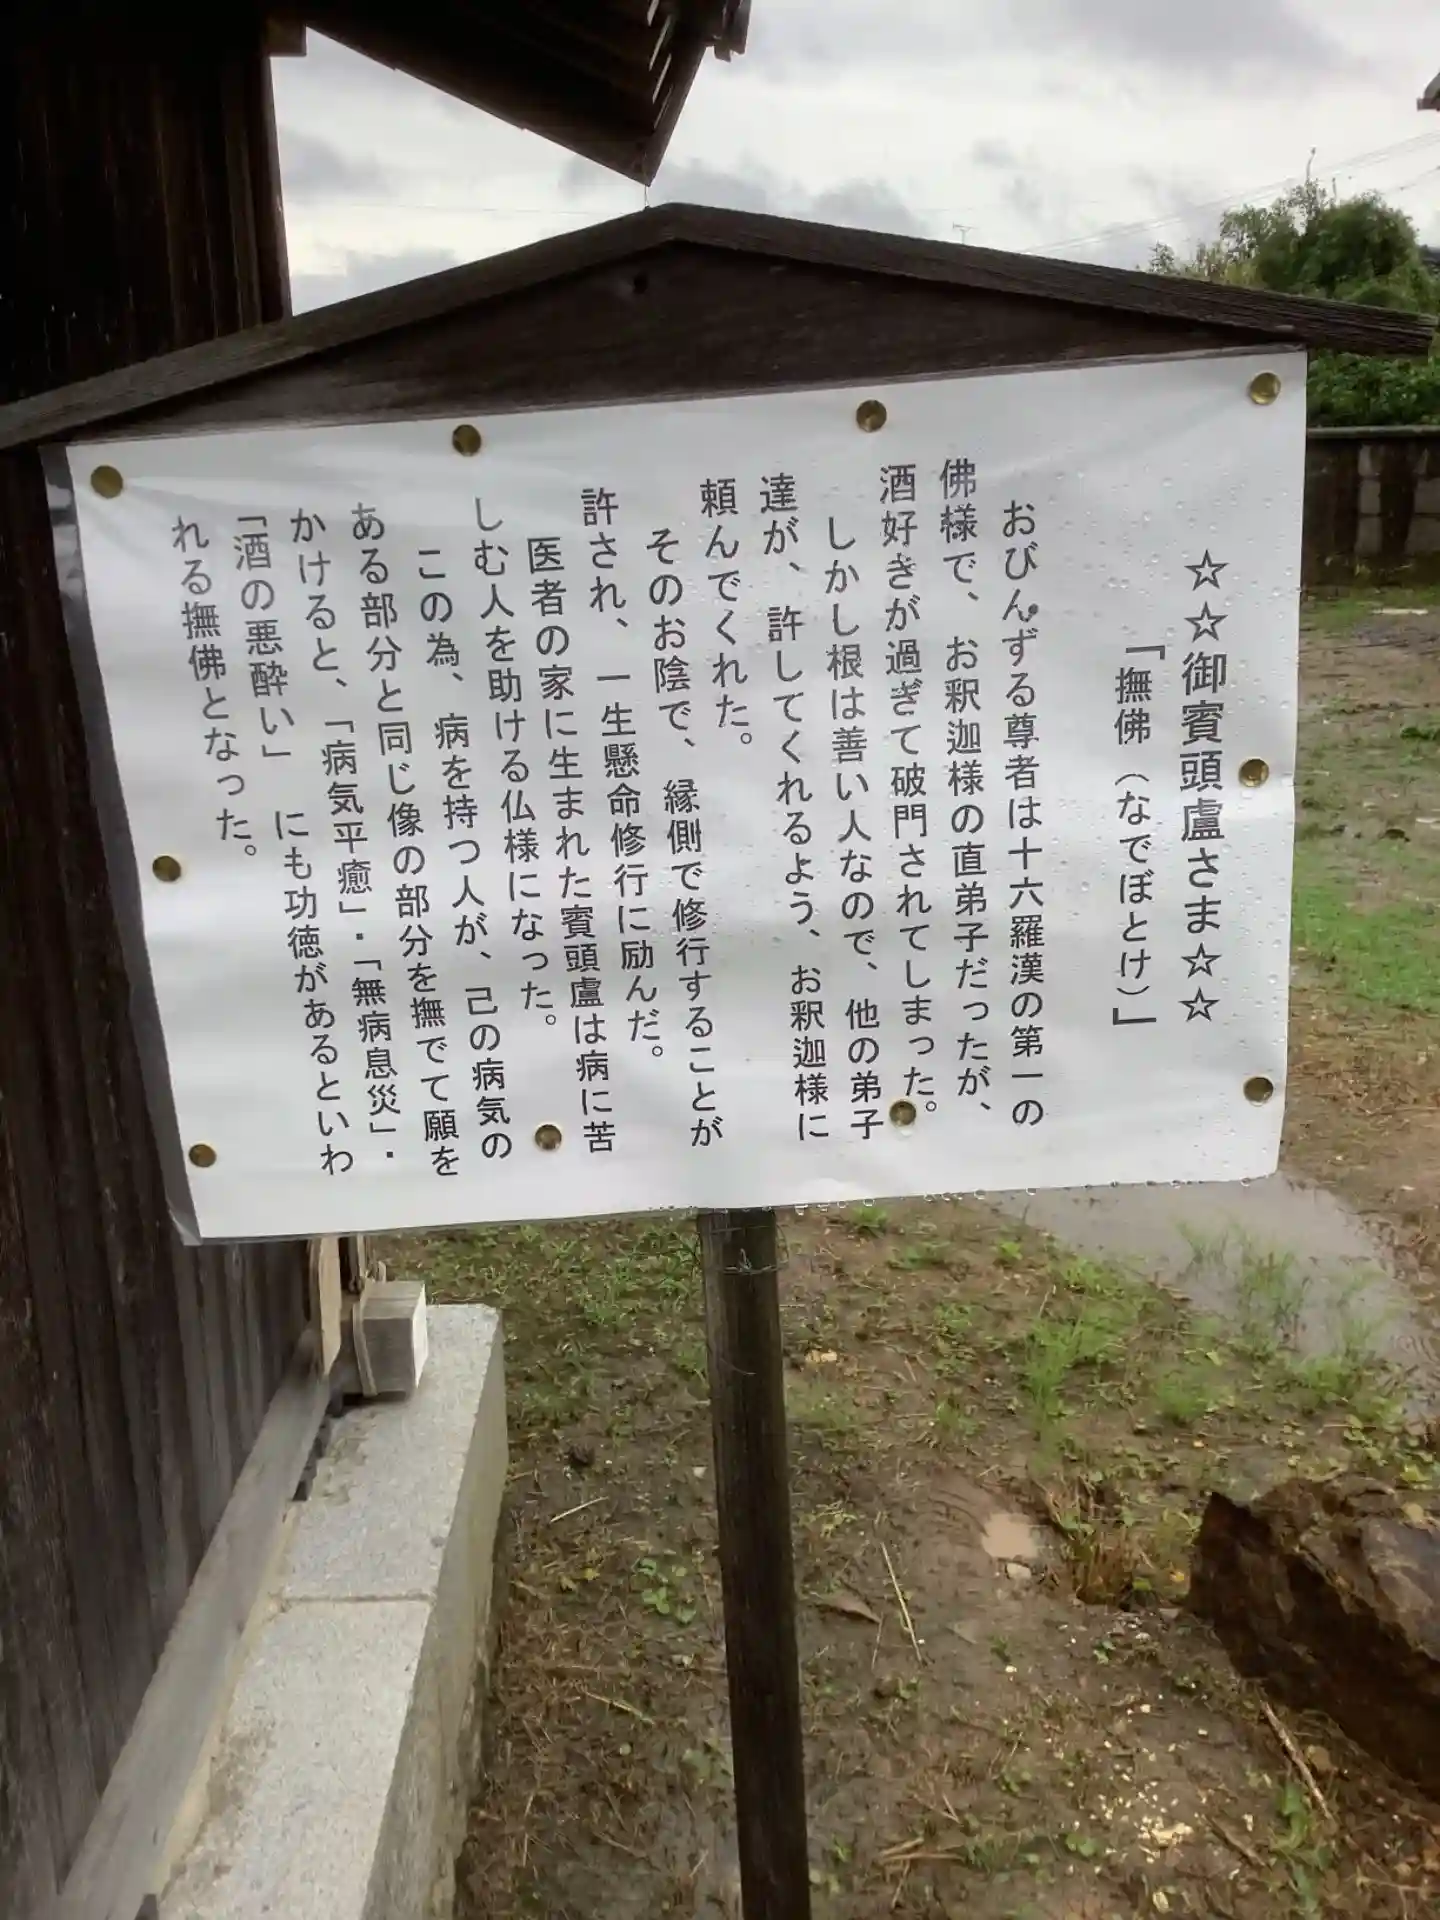 ☆☆御賓頭盧さま☆☆
「撫佛（なでぼとけ）」
おびんずる尊者は十六羅漢の第一の
佛様で、お釈迦様の直弟子だったが、
酒好きが過ぎて破門されてしまった。
しかし根は善い人なので、他の弟子
達が、許してくれるよう、お釈迦様に
頼んでくれた。
そのお陰で、縁側で修行することが
許され、一生懸命修行に励んだ。
医者の家に生まれた賓頭盧は病に苦
しむ人を助ける仏様になった。
この為、病を持つ人が、己の病気の
ある部分と同じ像の部分を撫でて願を
かけると、「病気平癒」・「無病息災」・
「酒の悪酔い」にも功徳があるといわ
れる撫佛となった。